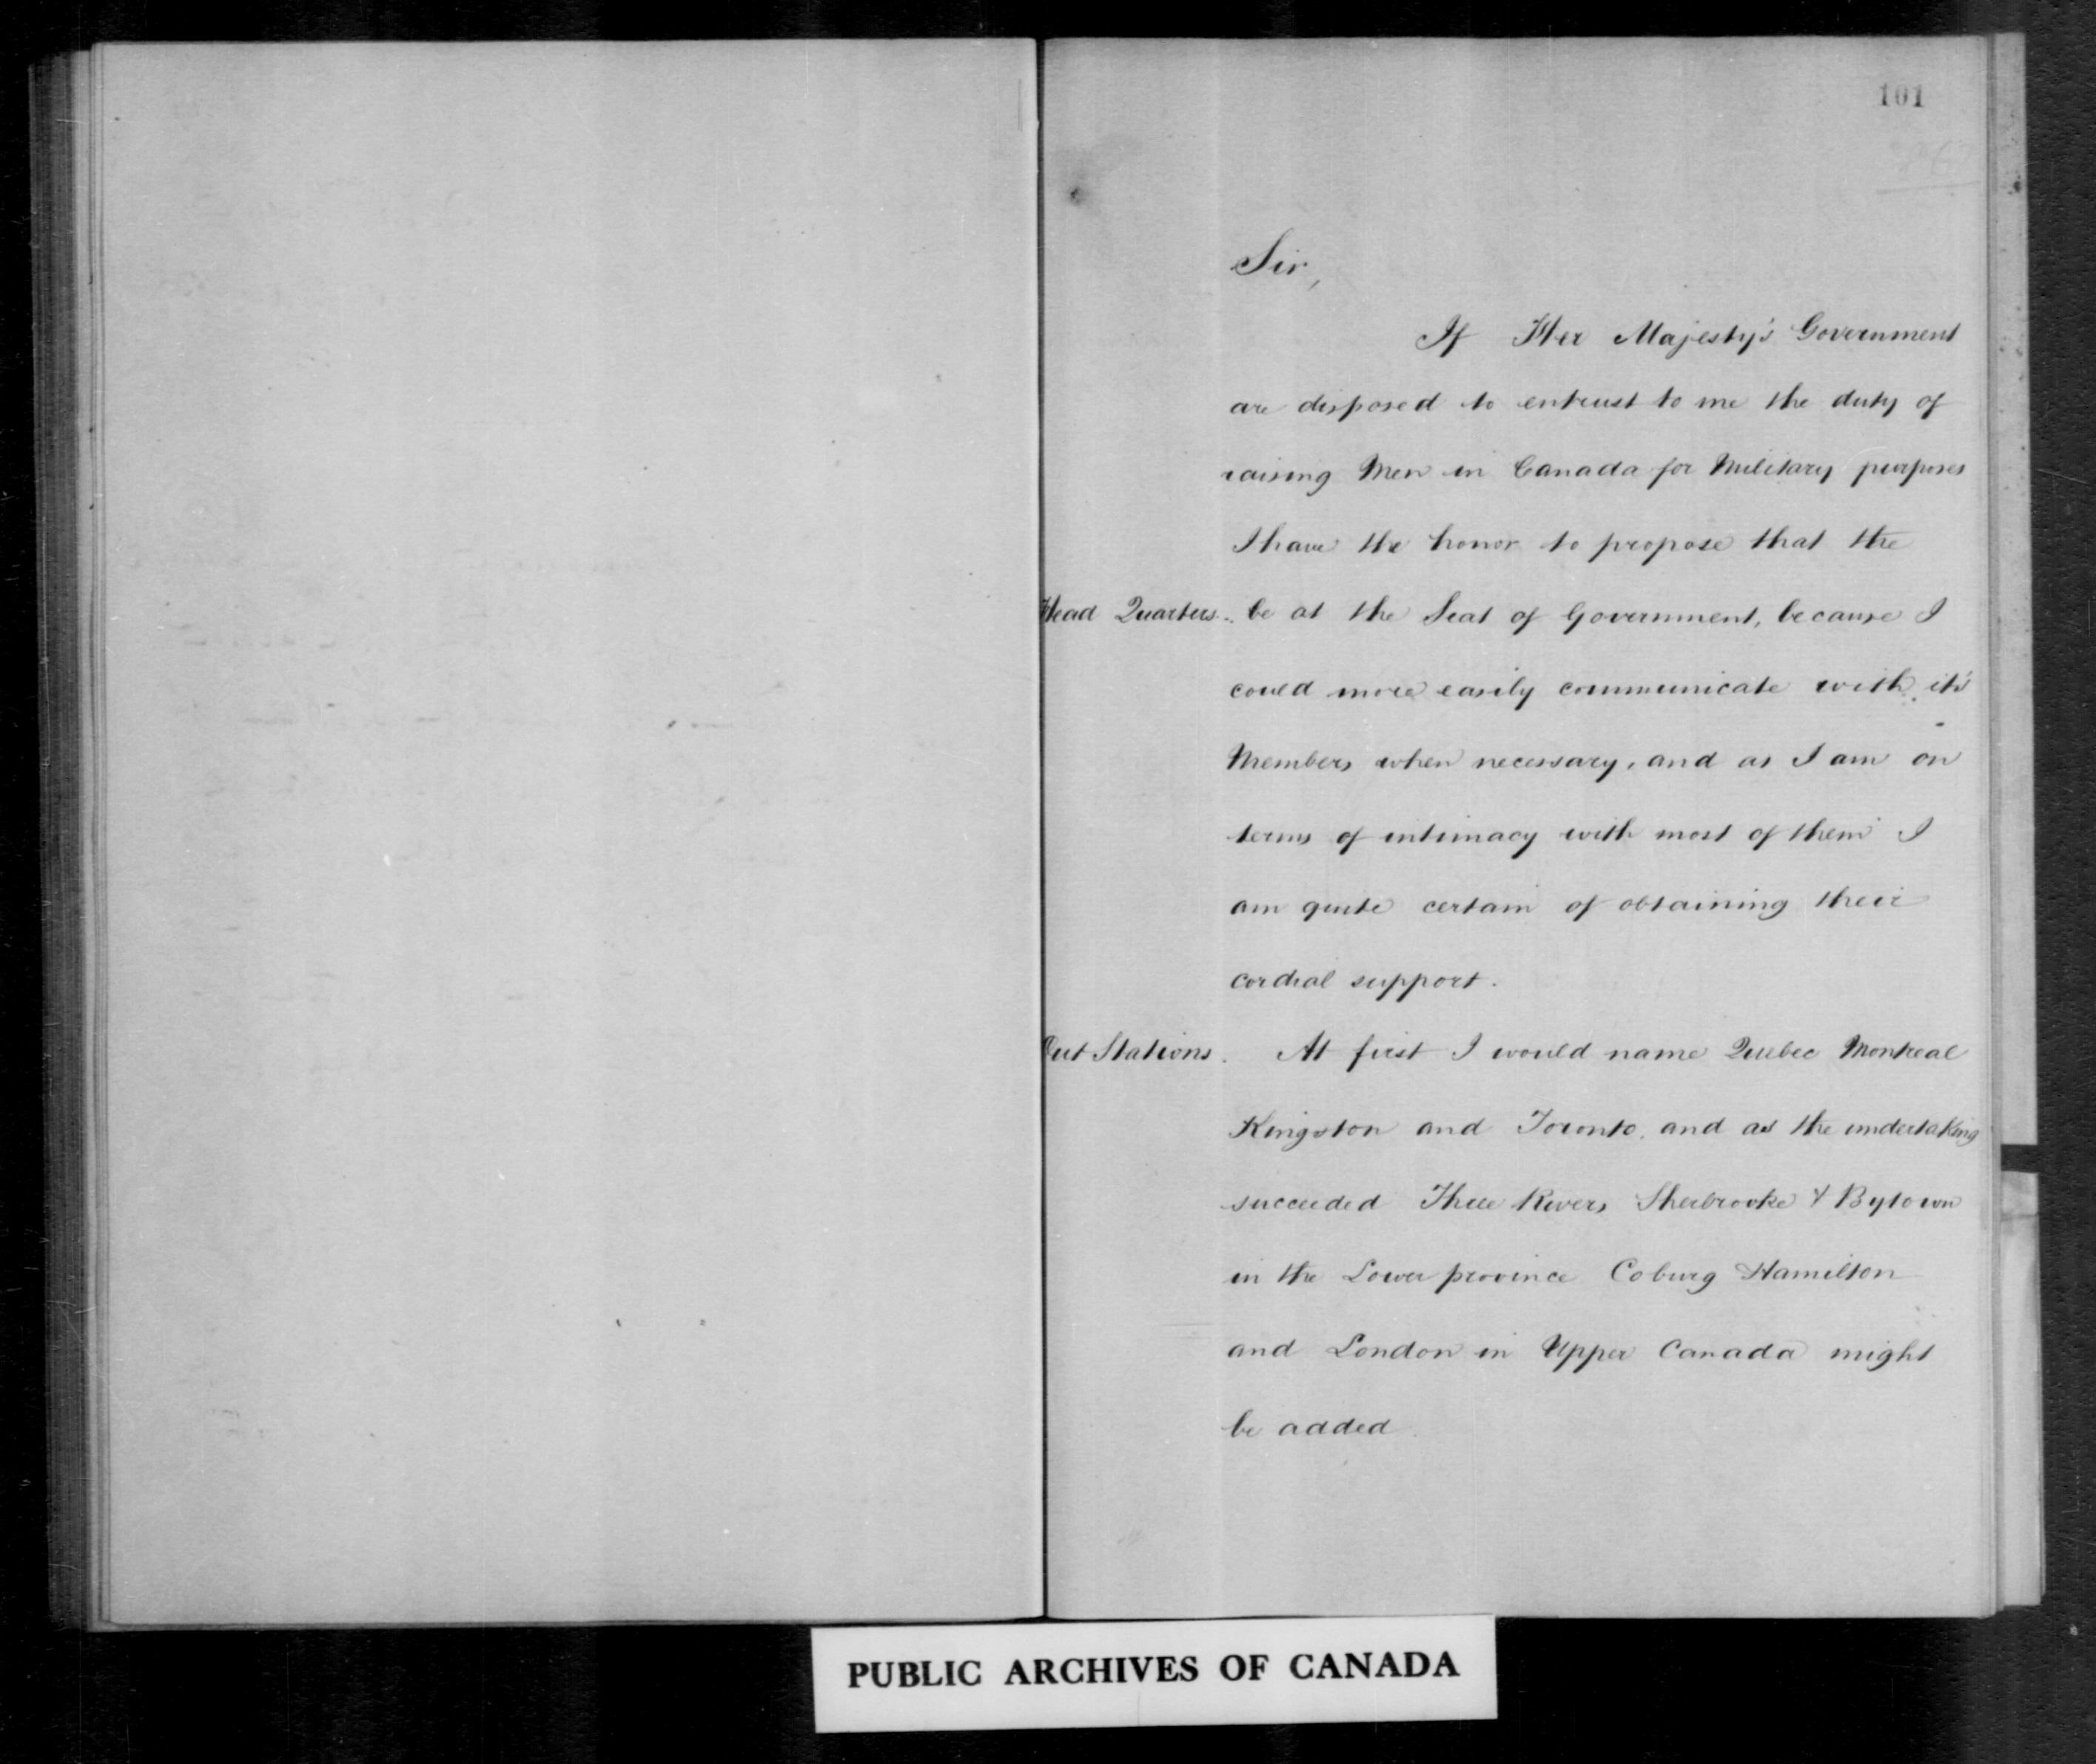 101
Sir,
If Her Majesty's Government
are disposed to entrust to me the duty of
raising Men in Canada for Military purposes
I have the honor to propose that the
Head Quarters .. be at the Seat of Government, because I
could more easily communicate with it's
Members when necessary, and as I am on
terms of intimacy with most of them I
am quite certain of obtaining their
cordial support.
Out Stations. At first I would name Quebec Montreal
Kingston and Toronto, and as the undertaking
succeeded Three Rivers Sherbrooke & Bytown
in the Lower province Coburg Hamilton
and London in Upper Canada might
be added
PUBLIC ARCHIVES OF CANADA